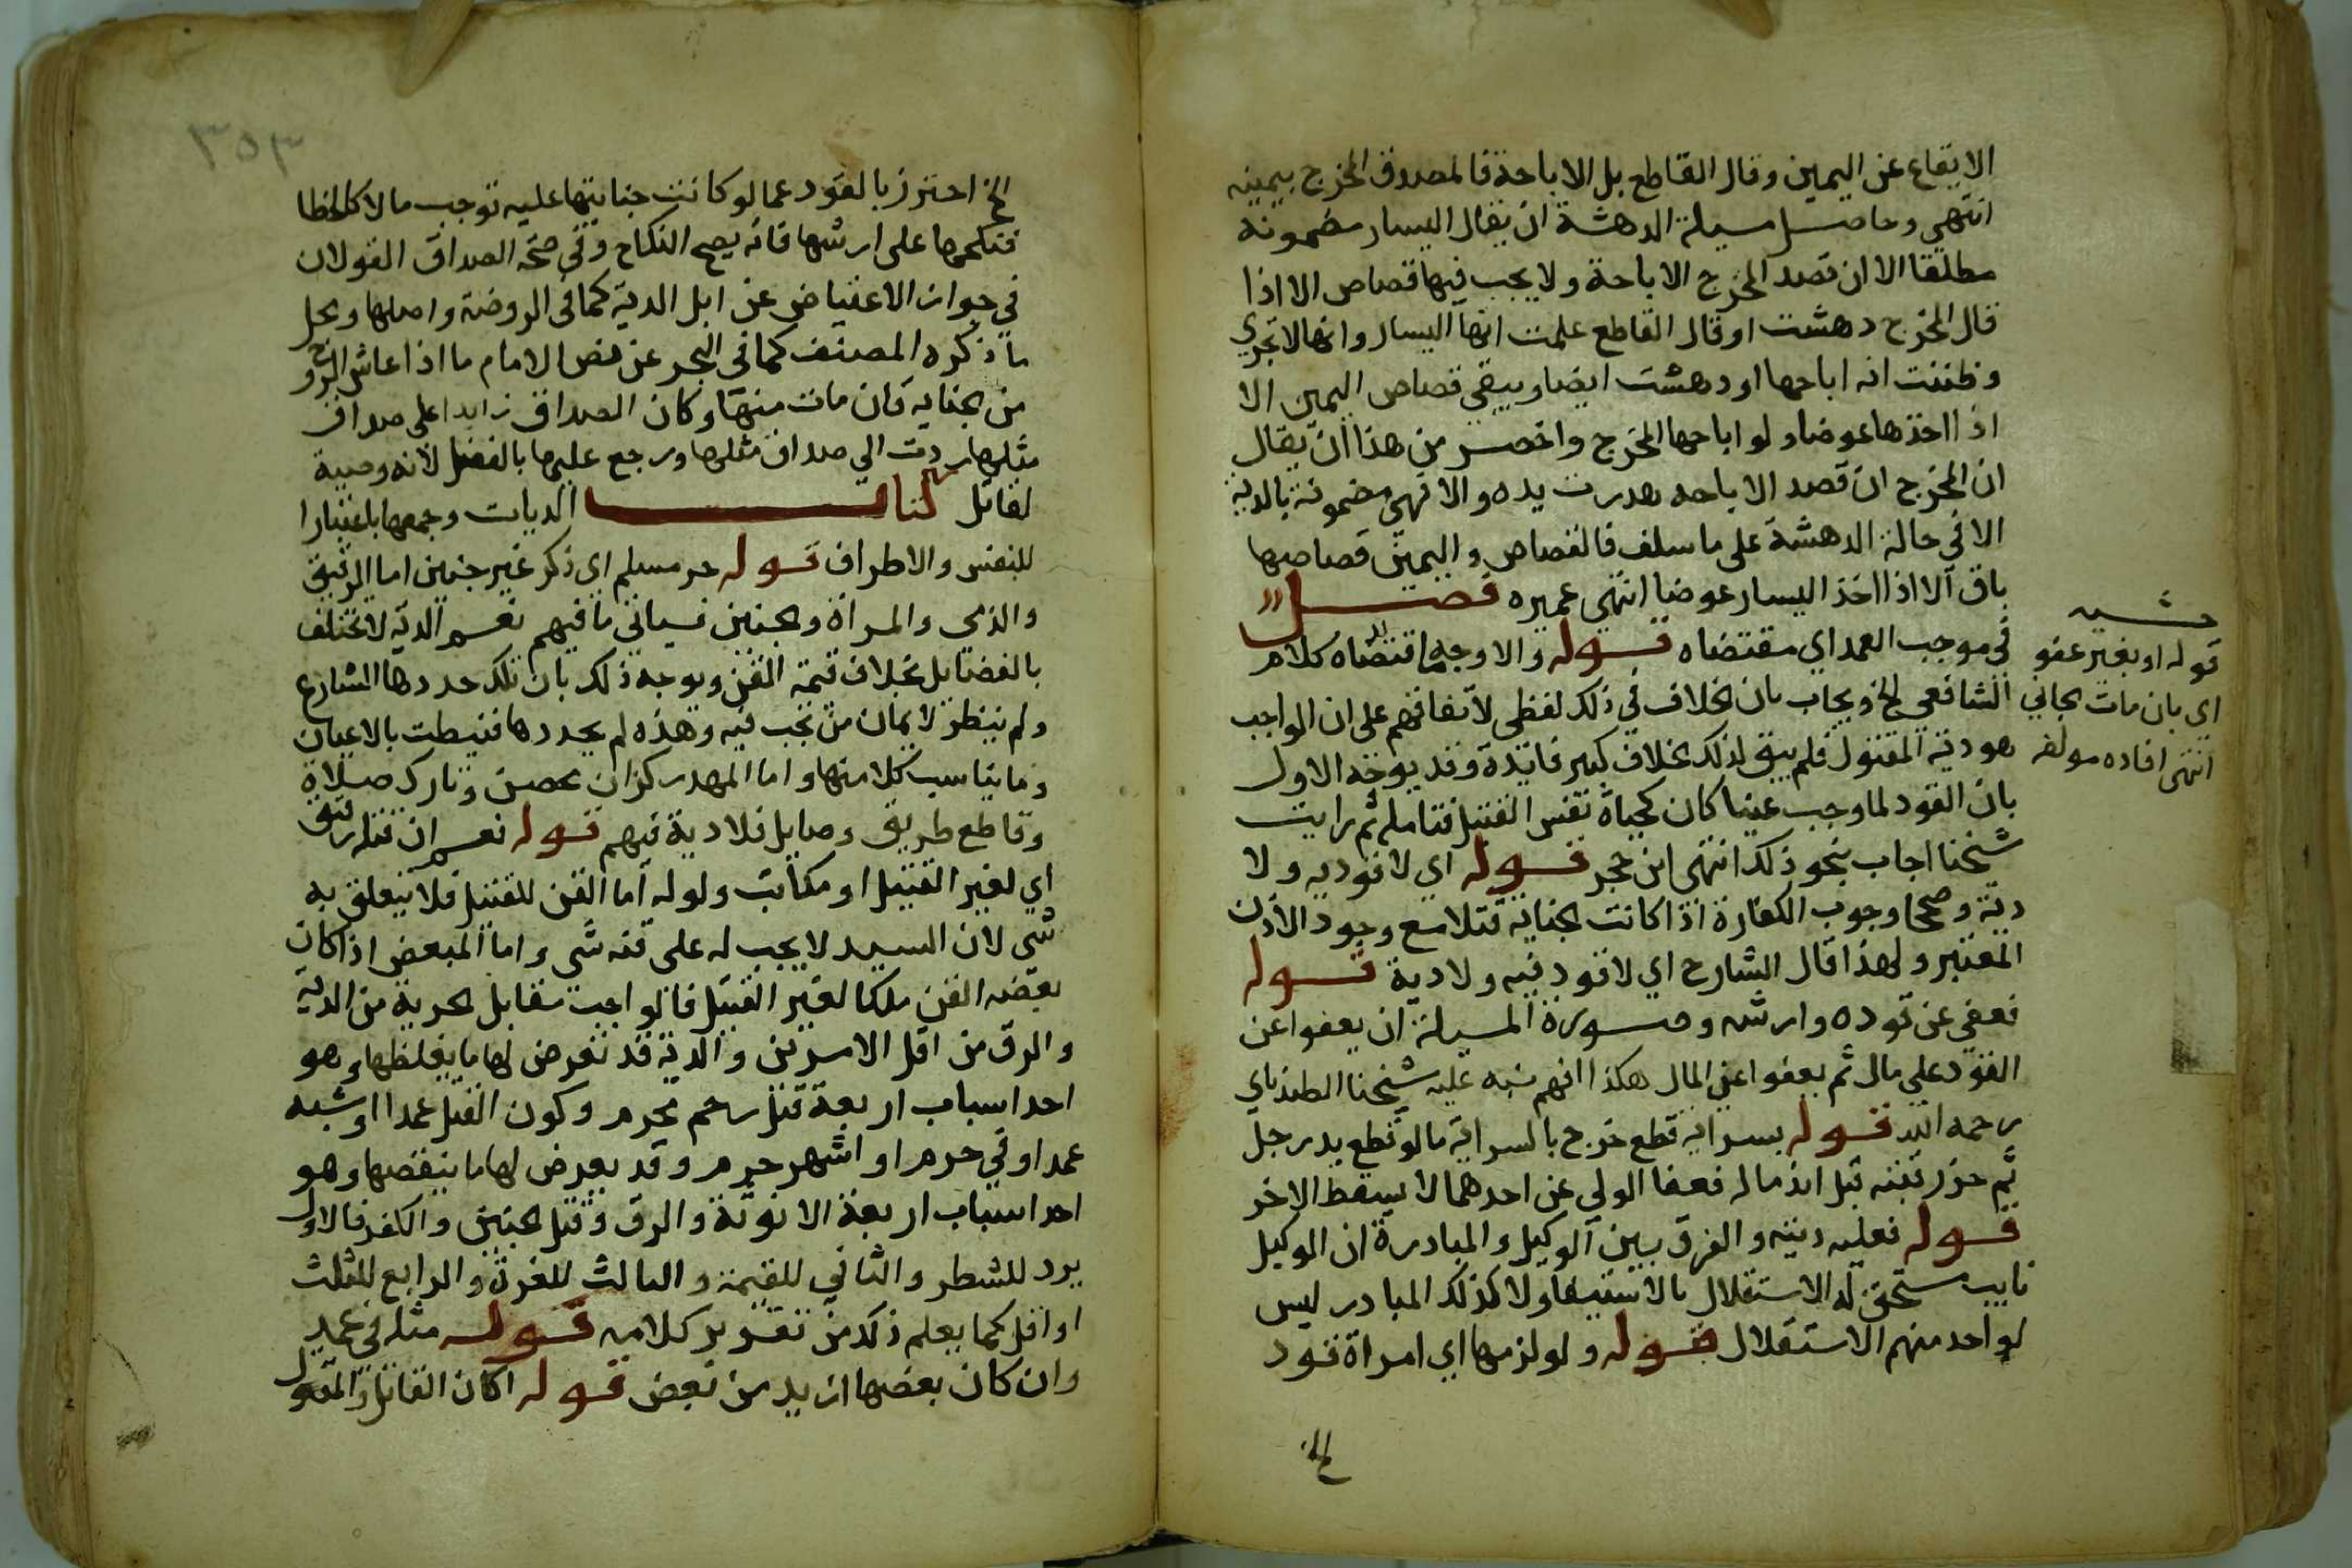 الايقاع عن اليمين وقال القاطع بل الاباحة فالمصدوق المخرج بيمينه
انتهى وحاصل مسيلة الدهشة ان يقال اليسار مضمونة
مطلقا الا ان قصد المخرج الاباحة ولا يجب فيها قصاص الا اذا
قال المخرج دهشت او قال القاطع علمت انها اليسار وانها لا تجزي
وظننت انه اباحها او دهشت ايضا ويبقى قصاص اليمين الا
اذا اخذها عوضا ولو اباحها المخرج واخصر من هذا ان يقال
ان المخرج ان قصد الاباحه هدرت يده والا فهي مضمونة بالدية
الا في حالة الدهشة على ما سلف فالقصاص واليمين قصاصها
باق الا اذا اخذ اليسار عوضا انتهى عميره فصل
في موجب العمد اي مقتضاه قوله والاوجه ما اقتضاه كلام
الشافعي الخ ويجاب بان الخلاف في ذلك لفظي لاتفاقهم على ان الواجب
هو دية المقتول فلم يبق لذلك الخلاف كبير فايدة وقد يوجه الاول
بان القود لما وجب عينا كان كحياة نفس القتيل فتامله ثم رايت
شيخنا اجاب بنحو ذلك انتهى ابن حجر قوله اي لا قود يه ولا
دية وصححا وجوب الكفارة اذا كانت الجناية قتلا مع وجود الاذن
المعتبر ولهذا قال الشارح اي لا قود فيه ولا دية قوله
فعفي عن قوده وارشه وصورة المسيلة ان يعفوا عن
القود على مال ثم يعفوا عن المال هكذا افهم نبه عليه شيخنا الطندتاي
رحمه الله قوله بسراية قطع خرج بالسراية ما لو قطع يد رجل
ثم حز رقبته قبل اندماله فعفا الولي عن احدهما لا يسقط الاخر
قوله فعليه ديته والفرق بين الوكيل والمبادرة ان الوكيل
نايب مستحق له الاستقلال بالاستيفا ولا كذلك المبادر ليس
لواحد منهم الاستقلال قوله ولو لزمها اي امراة قود
الخ
قوله او بغير عفو
اي بان مات الجاني
انتهى افاده مولفه
٣٥٣
الخ احترز بالقود عما لو كانت جنايتها عليه توجب مالا كالخطا
فنكحها على ارشها فانه يصح النكاح وفي صحة الصداق القولان
في جواز الاعتياض عن ابل الدية كما في الروضة واصلها ومحل
ما ذكره المصنف كما في البحر عن نص الامام ما اذا عاش الزوج
من الجناية فان مات منها وكان الصداق زايدا على صداق
مثلها ردت الي صداق مثلها ورجع عليها بالفضل لانه وصية
لقاتل كتاب الديات وجمعها باعتبار ا
للنفس والاطراف قوله حر مسلم اي ذكر غير جنين اما الرقيق
والذمى والمراة والجنين فسياتي ما فيهم نعم الدية لا تختلف
بالفضايل بخلاف قيمة القن ويوجه ذلك بان تلك حددها الشارع
ولم ينظر لاعيان من تجب فيه وهذه لم يحددها فنيطت بالاعيان
وما يناسب كلا منها واما المهدر كزان محصن وتارك صلاة
وقاطع طريق وصايل فلا دية فيهم قوله نعم ان قتله رقيق
اي لغير القتيل او مكاتب ولو له اما القن للقتيل فلا يتعلق به
شي لان السيد لا يجب له على قنه شي واما المبعض اذا كان
بعضه القن ملكا لغير القتيل فالواجب مقابل الحرية من الدية
والرق من اقل الامرين والدية قد تعرض لها ما يغلظها وهو
احد اسباب اربعة قتل رحم محرم وكون القتل عمدا او شبه
عمد او في حرم او اشهر حرم وقد يعرض لها ما ينقصها وهو
احد اسباب اربعة الانوثة والرق وقتل الجنين والكفر فالاول
يرد للشطر والثاني للقيمة والثالث للغرة والرابع للثلث
او اقل كما يعلم ذلك من تقرير كلامه قوله مثله في عمد
وان كان بعضها ازيد من بعض قوله اكان القاتل والمقتول